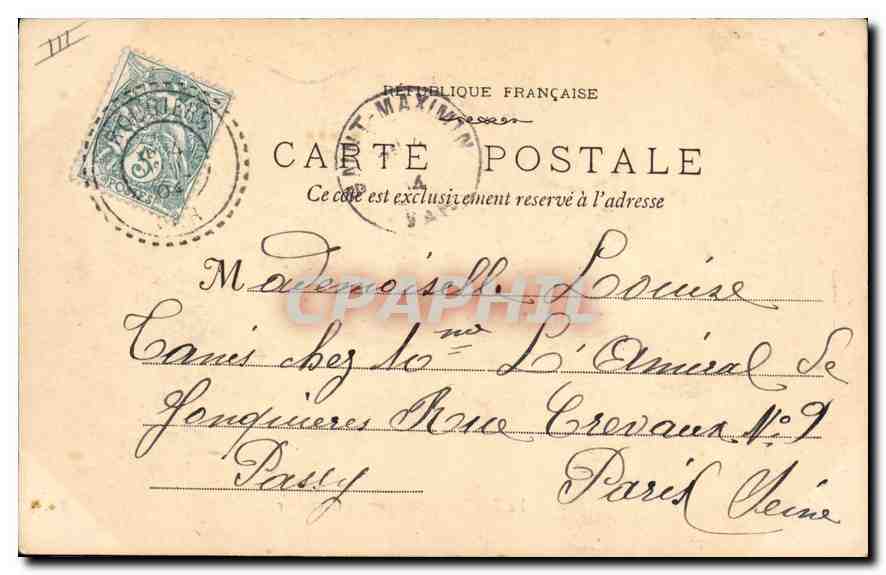 III
RÉPUBLIQUE FRANÇAISE
CARTE POSTALE
Ce côté est exclusivement reservé à l'adresse
SAINT-MAXIMIN
4
VAR
04
VAR
5c
POSTES
CPAPHIL
Mademoiselle Louise
Tanis chez Mme L'Amiral de
Jonquieres Rue Crevaux No 9
Passy Paris Seine